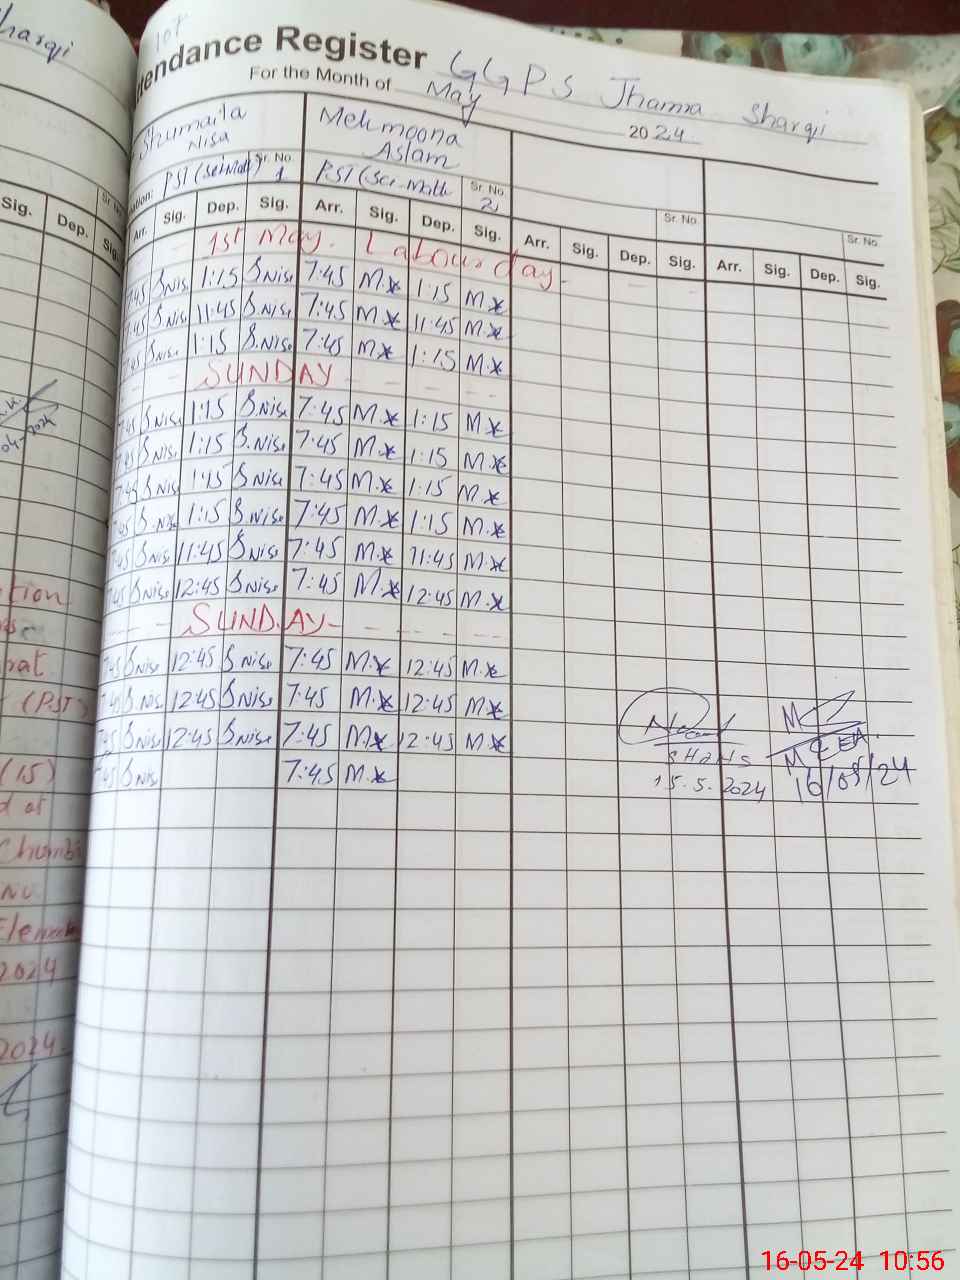 Sharqi
107
Attendance Register GGPS Jhamra Sharqi
For the Month of May 2024
Shumaila Nisa
Memoona Aslam
PST (Science) Sr. No. 1 PST (Sci-Math Sr. No. 2 Sr. No. Sr. No.
Sig. Dep. Sr. No. Sig.
Arr. Sig. Dep. Sig. Arr. Sig. Dep. Sig. Arr. Sig. Dep. Sig. Arr. Sig. Dep. Sig.
1st May. Labour day
7:45 S.Nisa 1:15 S.Nisa 7:45 M.* 1:15 M.*
7:45 S.Nisa 11:45 S.Nisa 7:45 M.* 11:45 M.*
7:45 S.Nisa 1:15 S.Nisa 7:45 M.* 1:15 M.*
SUNDAY
7:45 S.Nisa 1:15 S.Nisa 7:45 M.* 1:15 M.*
7:45 S.Nisa 1:15 S.Nisa 7:45 M.* 1:15 M.*
7:45 S.Nisa 1:15 S.Nisa 7:45 M.* 1:15 M.*
7:45 S.Nisa 1:15 S.Nisa 7:45 M.* 1:15 M.*
7:45 S.Nisa 11:45 S.Nisa 7:45 M.* 11:45 M.*
7:45 S.Nisa 12:45 S.Nisa 7:45 M.* 12:45 M.*
SUNDAY
7:45 S.Nisa 12:45 S.Nisa 7:45 M.* 12:45 M.*
7:45 S.Nisa 12:45 S.Nisa 7:45 M.* 12:45 M.*
7:45 S.Nisa 12:45 S.Nisa 7:45 M.* 12:45 M.*
7:45 S.Nisa 7:45 M.*
MEA
15.5.2024 16/05/24
(PST)
(15)
2024
2024
16-05-24 10:56